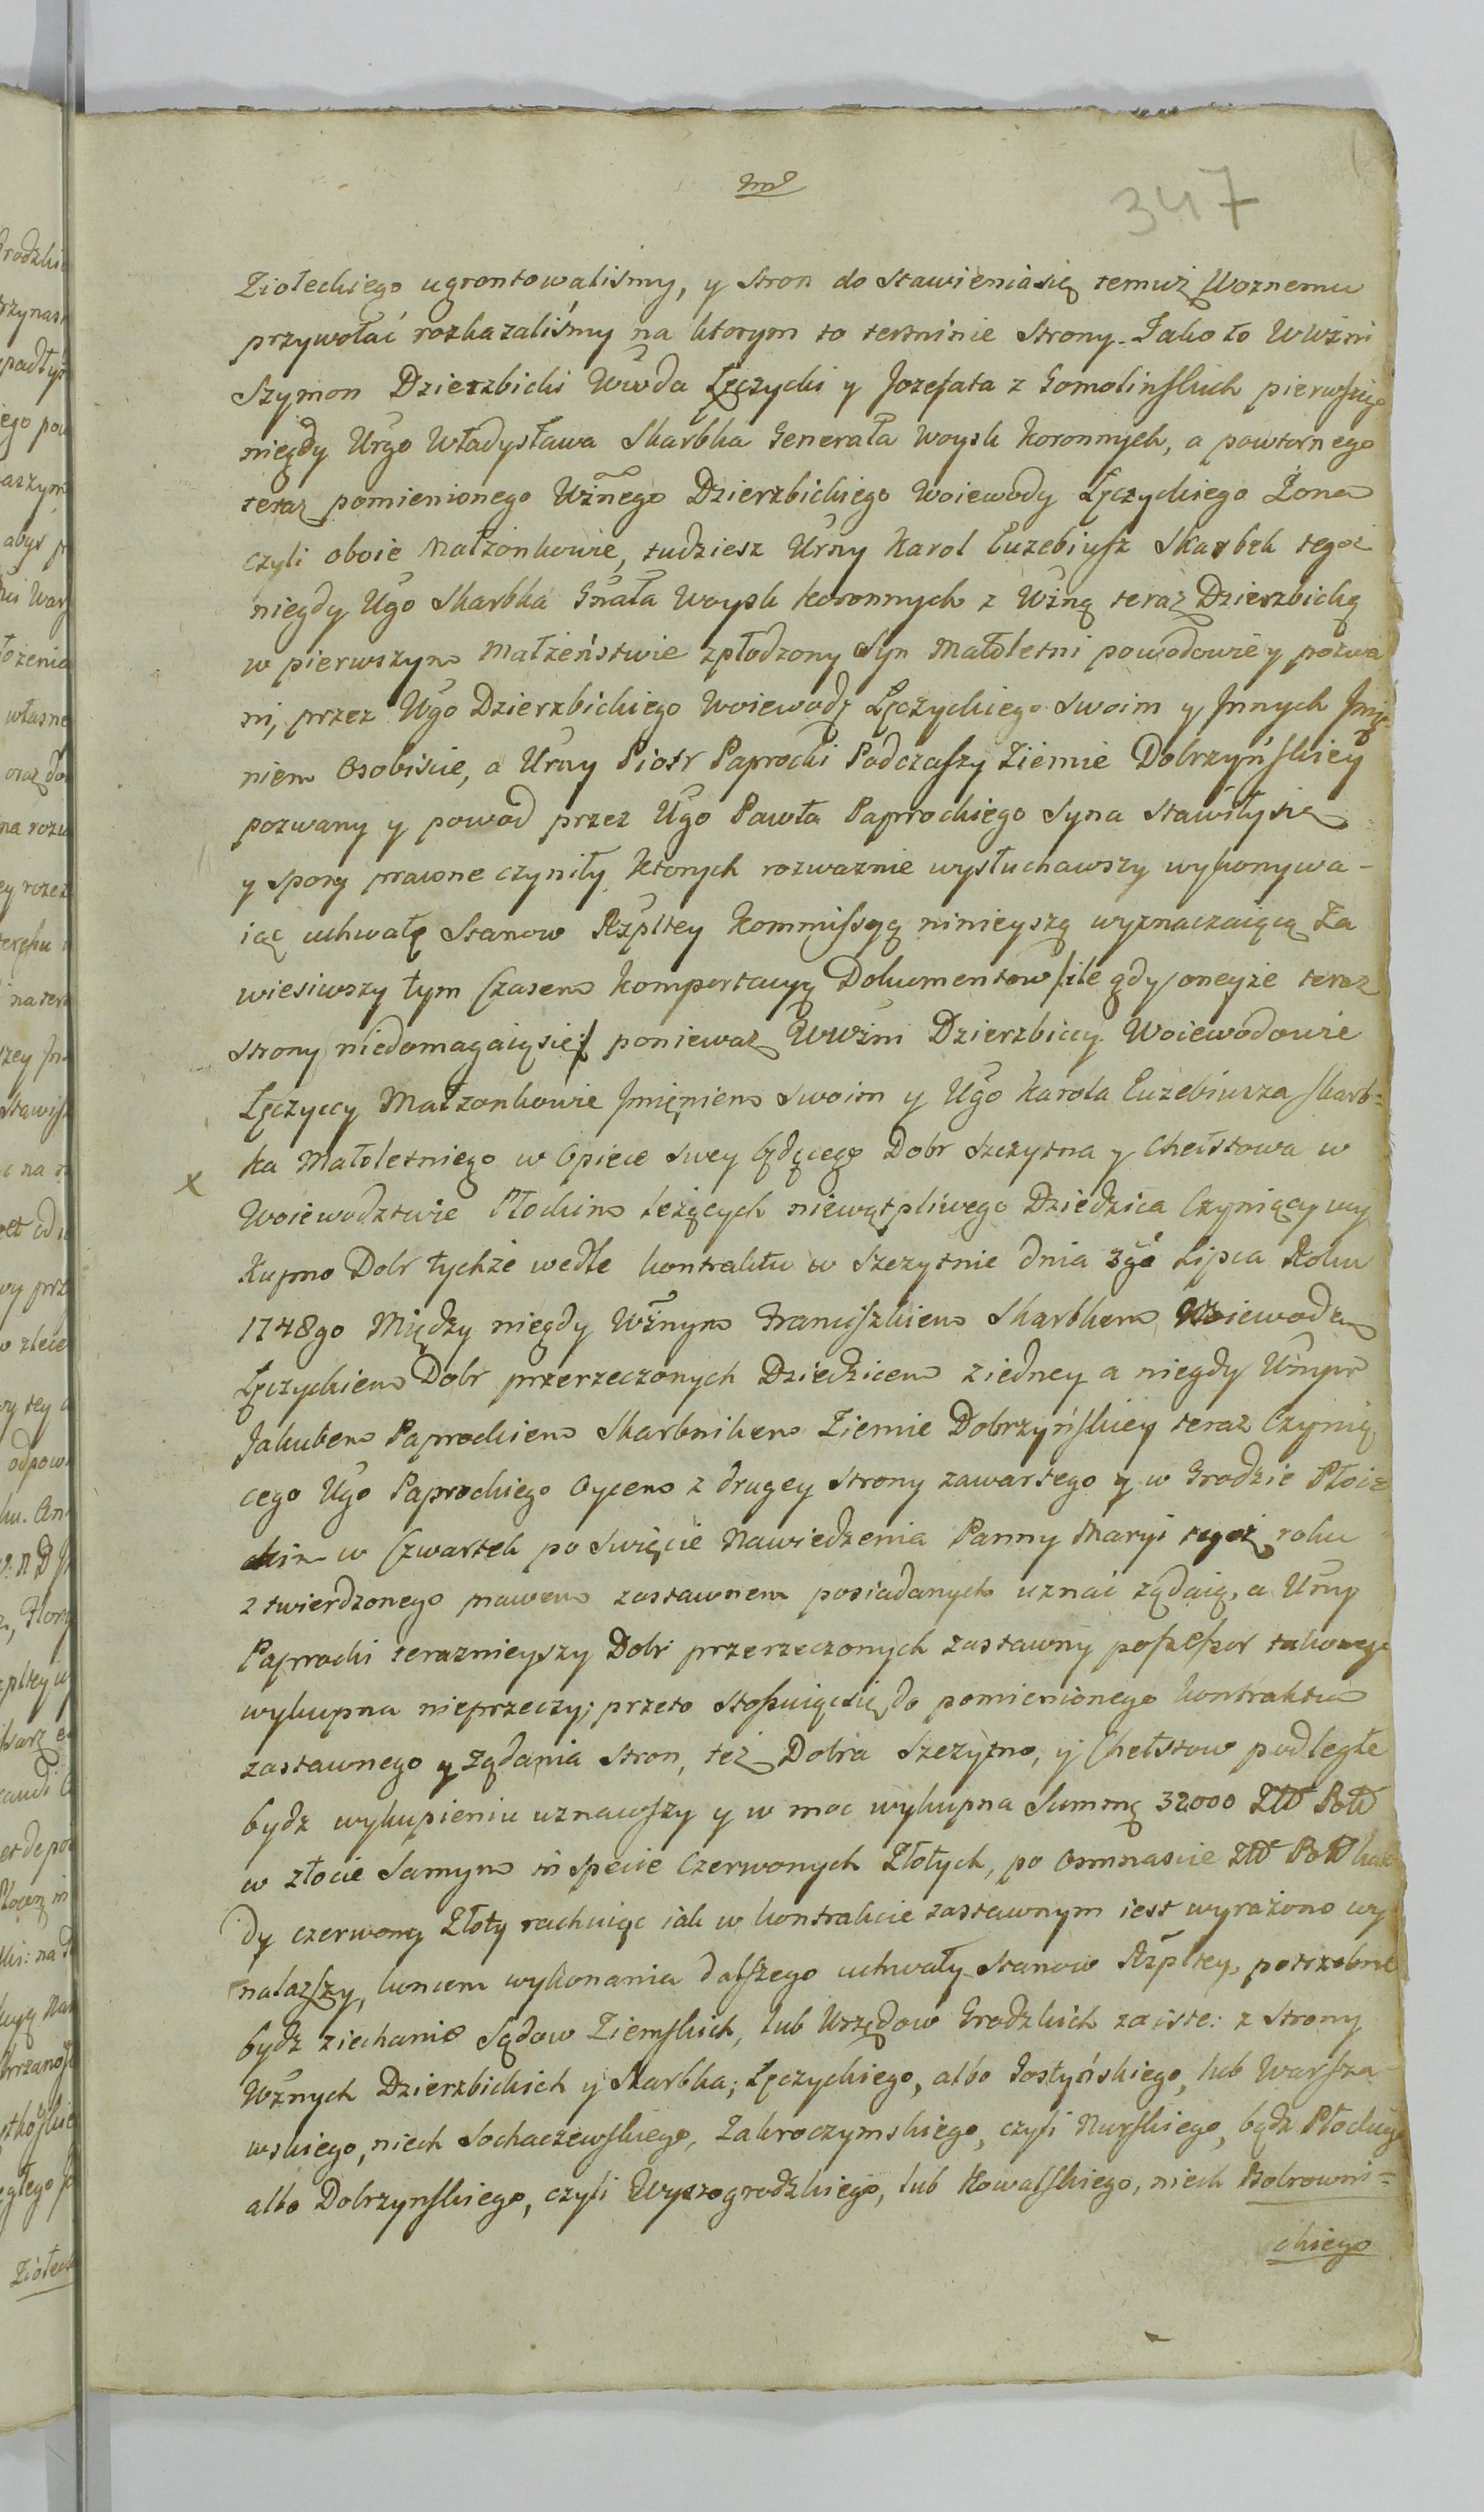 347
Ziołeckiego ugrontowaliśmy, y stron do stawieniasię temuż Woznemu
przywołać rozkazaliśmy na ktorym to terminie strony Jako to WWżni
Szymon Dzierzbicki Wwda Łęczycki y Jozefata z Gomolinskich pierwszego
niegdy Urgo Władysława Skarbka Generała Woysk Koronnych, a powtornego
teraz pomienionego Wżnego Dzierzbickiego Woiewody Łęczyckiego Żona
czyli oboie Małżonkowie, tudziesz Urny Karol Euzebiusz Skarbek tegoż
niegdy Ugo Skarbka Gnała Woysk Koronnych z Wżną teraz Dzierzbicką
w pierwszym Małżeństwie zpłodzony Syn Małoletni powodowie y pozwa
ni, przez Ugo Dzierzbickiego Woiewodę Łęczyckiego Swoim y Innych Imie
niem Osobiscie, a Urny Piotr Paprocki Podczaszy Ziemie Dobrzyńskiey
pozwany y powod przez Ugo Pawła Paprockiego Syna stawiłysię
y spory prawne czyniły ktorych rozwaznie wysłuchawszy wykonywa-
iąc uchwałę Stanow Rzpltey Kommissyą ninieyszą wyznaczaiącą Za
wiesiwszy tym Czasem Komportacyą Dokumentow /:ile gdy oneyże teraz
strony niedomagaiąsię:/ poniewaz WWżni Dzierzbiccy Woiewodowie
Łęczyccy Małżonkowie Imieniem Swoim y Ugo Karola Euzebiusza Skarb=
ka Małoletniego w Opiece swey będącego Dobr Szczytna y Chełstowa w
x
Woiewodztwie Płockim leżących niewątpliwego Dziedzica Czyniący wy
Kupno Dobr tychże wedle kontraktu w Szczytnie dnia 3go Lipca Roku
1748go Między niegdy Wżnym Franciszkiem Skarbkiem Woiewodą
Łęczyckiem Dobr przerzeczonych Dziedzicem ziedney a niegdy Urnym
Jakubem Paprockiem Skarbnikem Ziemie Dobrzyńskiey teraz Czynią
cego Ugo Paprockiego Oycem z drugey strony zawartego y w Grodzie Płoc
kim w Czwartek po Swięcie Nawiedzenia Panny Maryi tegoż roku
ztwierdzonego prawem zastawnem posiadanych uznać żądaią, a Urny
Paprocki teraznieyszy Dobr przerzeczonych zastawny possessor takowego
wykupna nieprzeczy; przeto stosuiącsię do pomienionego kontraktu
zastawnego y żądania stron, też Dobra Szczytno, y Chełstow podległe
bydz wykupieniu uznawszy y w moc wykupna Summę 32000
w złocie samym in specie Czerwonych Złotych, po osmnascie
dy czerwony Złoty rachuiąc iak w kontrakcie zastawnym iest wyrażono wy
nalazszy, koncem wykonania dalszego uchwały Stanow Rzpltey, potrzebne
bydz ziechanie Sądow Ziemskich, lub Urzędow Grodzkich zaiste: z strony
Wżnych Dzierzbickich y Skarbka; Łęczyckiego, albo Gostyńskiego, lub Warsza
wskiego, niech Sochaczewskiego, Zakroczymskiego, czyli Nurskiego, bądz Płockiego
albo Dobrzynskiego, czyli Wyszogrodzkiego, lub Kowalskiego, niech Bobrowni=
ckiego